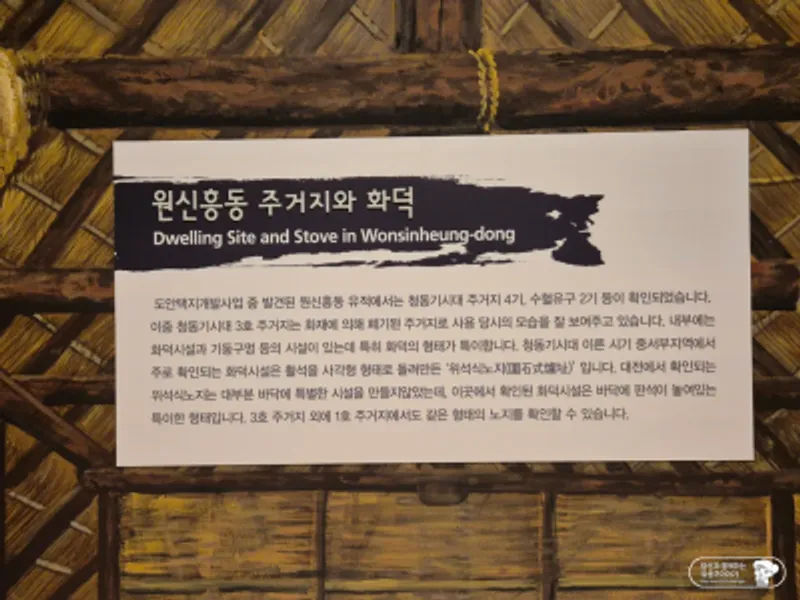 원신흥동 주거지와 화덕
Dwelling Site and Stove in Wonsinheung-dong
도안택지개발사업 중 발견된 원신흥동 유적에서는 청동기시대 주거지 4기, 수혈유구 2기 등이 확인되었습니다.
이중 청동기시대 3호 주거지는 화재에 의해 폐기된 주거지로 사용 당시의 모습을 잘 보여주고 있습니다. 내부에는
화덕시설과 기둥구멍 등의 시설이 있는데 특히 화덕의 형태가 특이합니다. 청동기시대 이른 시기 중서부지역에서
주로 확인되는 화덕시설은 할석을 사각형 형태로 돌려만든 '위석식노지(圍石式爐址)' 입니다. 대전에서 확인되는
위석식노지는 대부분 바닥에 특별한 시설을 만들지않았는데, 이곳에서 확인된 화덕시설은 바닥에 판석이 놓여있는
특이한 형태입니다. 3호 주거지 외에 1호 주거지에서도 같은 형태의 노지를 확인할 수 있습니다.